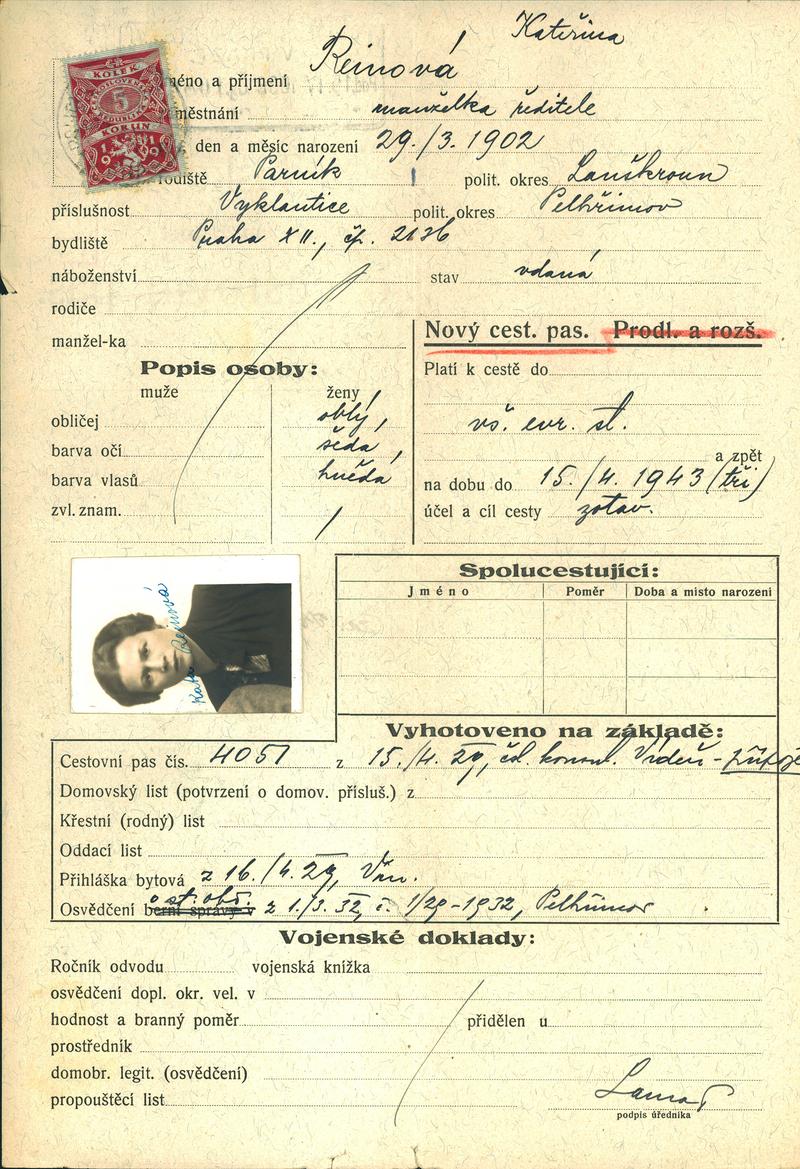 Kateřina
Reinová
méno a příjmení
městnání manželka ředitele
den a měsíc narození 29./3. 1902
KOLEK
5
KORUN
1919
odiště Parník polit. okres Lanškroun
příslušnost Vyklantice polit. okres Pelhřimov
bydliště Praha XII., čp. 2136
náboženství stav vdaná
rodiče
manžel-ka
Nový cest. pas. Prodl. a rozš.
Popis osoby:
muže ženy
obličej oblý,
barva očí šedá,
barva vlasů hnědá
zvl. znam. /
Platí k cestě do
vš. evr. st.
a zpět
na dobu do 15./4. 1943 (tři)
účel a cíl cesty zotav.
Kat. Reinová
Spolucestující:
Jméno Poměr Doba a místo narození
Vyhotoveno na základě:
Cestovní pas čís. 4051 z 15./4. 29, čsl. konsul. Vídeň -
Domovský list (potvrzení o domov. přísluš.) z
Křestní (rodný) list
Oddací list
Přihláška bytová z 16./4. 29, Vin.
o st. obč.
Osvědčení berní správy v z 1./3. 32, č. 1/29-1932, Pelhřimov
Vojenské doklady:
Ročník odvodu vojenská knížka
osvědčení dopl. okr. vel. v
hodnost a branný poměr přidělen u
prostředník
domobr. legit. (osvědčení)
propouštěcí list
podpis úředníka